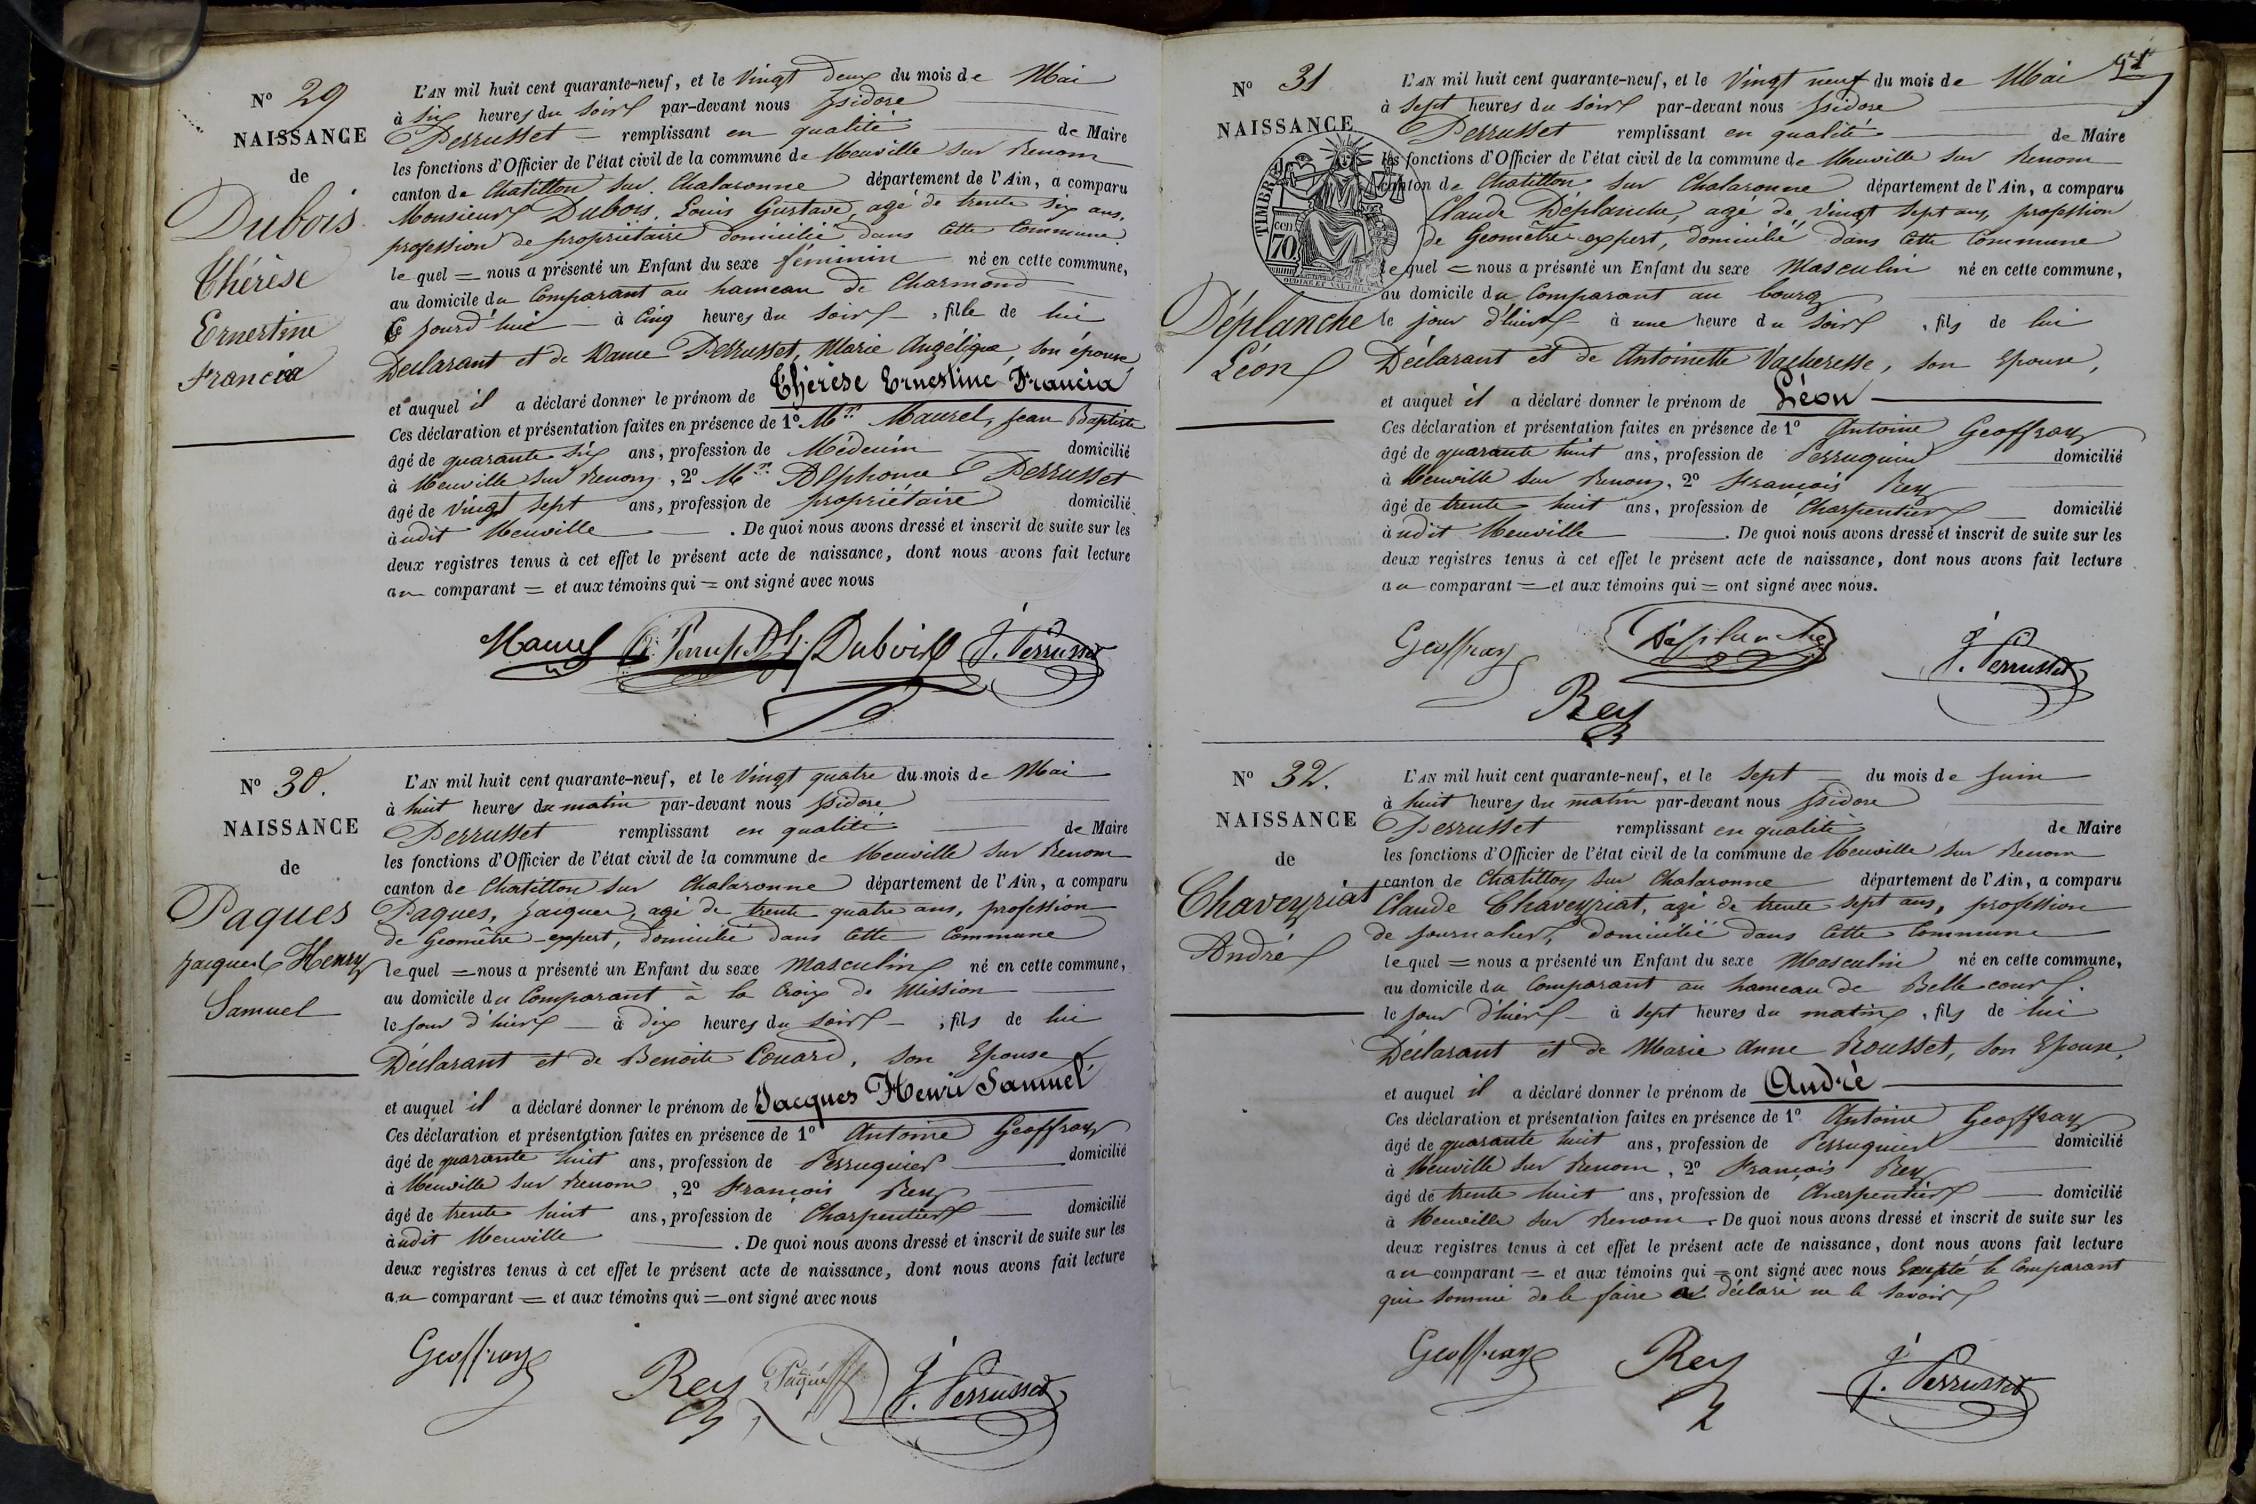 N° 29
NAISSANCE
de
Dubois
Thérèse
Ernestine
Francia
L'AN mil huit cent quarante-neuf, et le Vingt deux du mois de Mai
à Six heures du soir par-devant nous Isidore
Perrusset = remplissant en qualité de Maire
les fonctions d'Officier de l'état civil de la commune de Neuville sur Renom
canton de Chatillon sur Chalaronne département de l'Ain, a comparu
Monsieur Dubois, Louis Gustave, agé de trente six ans,
profession de propriétaire domicilié dans cette Commune
le quel = nous a présenté un Enfant du sexe féminin né en cette commune,
au domicile du Comparant au hameau de Charmond
ce jourd'hui à Cinq heures du Soir, fille de lui
Déclarant et de Dame Perrusset, Marie Angélique, son épouse
et auquel il a déclaré donner le prénom de Thérèse Ernestine Francia
Ces déclaration et présentation faites en présence de 1° Mr. Maurel, Jean Baptiste
âgé de quarante six ans, profession de Médecin domicilié
à Neuville sur Renom, 2° Mr. Alphonse Perrusset
âgé de vingt sept ans, profession de propriétaire domicilié
àudit Neuville. De quoi nous avons dressé et inscrit de suite sur les
deux registres tenus à cet effet le présent acte de naissance, dont nous avons fait lecture
au comparant = et aux témoins qui = ont signé avec nous
Maurel Perrusset Dubois J. Perrusset
N° 30.
NAISSANCE
de
Paques
Jacques Henry
Samuel
L'AN mil huit cent quarante-neuf, et le Vingt quatre du mois de Mai
à huit heures du matin par-devant nous Isidore
Perrusset remplissant en qualité de Maire
les fonctions d'Officier de l'état civil de la commune de Neuville sur Renom
canton de Chatillon sur Chalaronne département de l'Ain, a comparu
Paques, Jacques, agé de trente quatre ans, profession
de Geomètre-expert, domicilié dans cette Commune
le quel = nous a présenté un Enfant du sexe Masculin né en cette commune,
au domicile du Comparant à la Croix de Mission
le jour d'hier à dix heures du Soir, fils de lui
Déclarant et de Benoite Couard, son Epouse
et auquel il a déclaré donner le prénom de Jacques Henri Samuel
Ces déclaration et présentation faites en présence de 1° Antoine Geoffray
âgé de quarante huit ans, profession de Perruquier domicilié
à Neuville sur Renom, 2° François Rey
âgé de trente huit ans, profession de Charpentier domicilié
àudit Neuville. De quoi nous avons dressé et inscrit de suite sur les
deux registres tenus à cet effet le présent acte de naissance, dont nous avons fait lecture
au comparant = et aux témoins qui = ont signé avec nous
Geoffray Rey Paques J. Perrusset
N° 31
NAISSANCE
TIMBRE
cen
70
Déplanche
Léon
L'AN mil huit cent quarante-neuf, et le Vingt neuf du mois de Mai
à Sept heures du Soir par-devant nous Isidore
Perrusset remplissant en qualité de Maire
les fonctions d'Officier de l'état civil de la commune de Neuville sur Renom
canton de Chatillon sur Chalaronne département de l'Ain, a comparu
Claude Déplanche, agé de Vingt sept ans, profession
de Geomètre expert, domicilié dans cette Commune
le quel = nous a présenté un Enfant du sexe Masculin né en cette commune,
au domicile du Comparant au bourg
le jour d'hier à une heure du Soir, fils de lui
Déclarant et de Antoinette Vacheresse, son Epouse,
et auquel il a déclaré donner le prénom de Léon
Ces déclaration et présentation faites en présence de 1° Antoine Geoffray
âgé de quarante huit ans, profession de Perruquier domicilié
à Neuville sur Renom, 2° François Rey
âgé de trente huit ans, profession de Charpentier domicilié
àudit Neuville. De quoi nous avons dressé et inscrit de suite sur les
deux registres tenus à cet effet le présent acte de naissance, dont nous avons fait lecture
au comparant = et aux témoins qui = ont signé avec nous.
Geoffray Déplanche J. Perrusset
Rey
N° 32.
NAISSANCE
de
Chaveyriat
André
L'AN mil huit cent quarante-neuf, et le Sept du mois de Juin
à huit heures du matin par-devant nous Isidore
Perrusset remplissant en qualité de Maire
les fonctions d'Officier de l'état civil de la commune de Neuville sur Renom
canton de Chatillon sur Chalaronne département de l'Ain, a comparu
Claude Chaveyriat, agé de trente sept ans, profession
de journalier, domicilié dans cette Commune
le quel = nous a présenté un Enfant du sexe Masculin né en cette commune,
au domicile du Comparant au hameau de Belle cour.
le jour d'hier à sept heures du matin, fils de lui
Déclarant et de Marie Anne Rousset, son Epouse,
et auquel il a déclaré donner le prénom de André
Ces déclaration et présentation faites en présence de 1° Antoine Geoffray
âgé de quarante huit ans, profession de Perruquier domicilié
à Neuville sur Renom, 2° François Rey
âgé de trente huit ans, profession de Charpentier domicilié
à Neuville sur Renom. De quoi nous avons dressé et inscrit de suite sur les
deux registres tenus à cet effet le présent acte de naissance, dont nous avons fait lecture
au comparant = et aux témoins qui = ont signé avec nous Excepté le Comparant
qui sommé de le faire a déclaré ne le Savoir
Geoffray Rey J. Perrusset